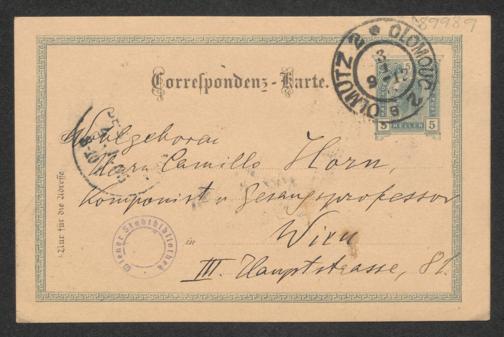 89989
OLMÜTZ 2 * OLOMOUC 2
9-12
5 HELLER 5
Correspondenz-Karte.
Wohlgeboren
Herrn Camillo Horn,
Komponist u Gesangsprofessor
in Wien
III. Hauptstrasse, 81.
Nur für die Adresse
Wiener Stadtbibliothek